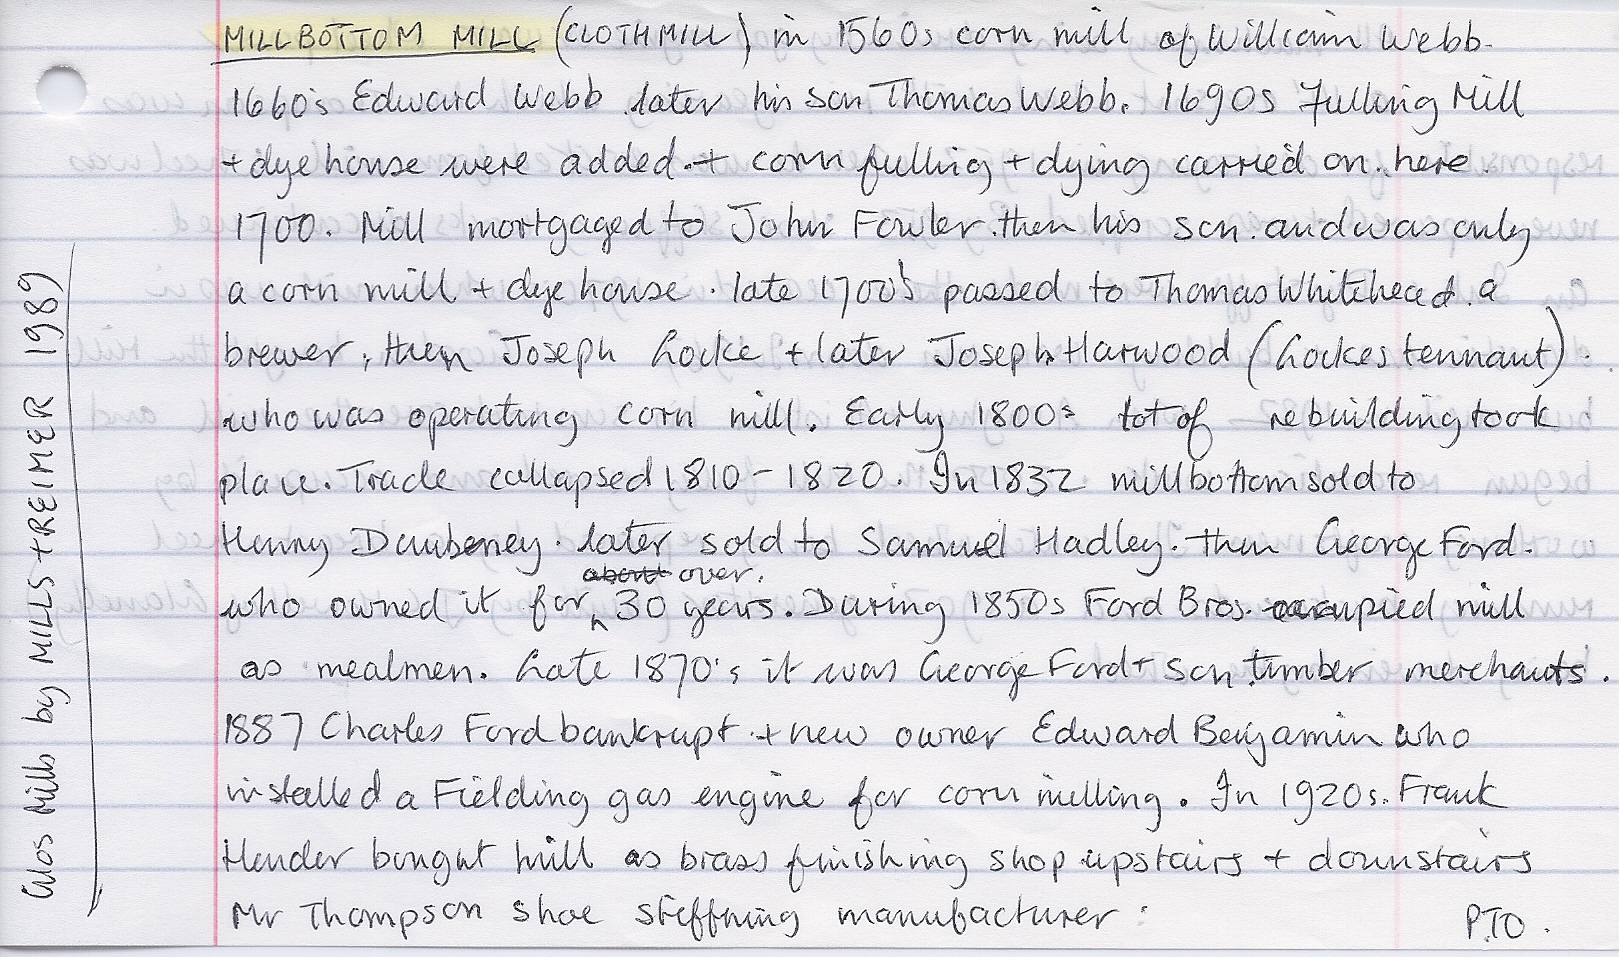 MILLBOTTOM MILL (CLOTHMILL) in 1560s corn mill of William Webb.
1660's Edward Webb later his son Thomas Webb. 1690s Fulling Mill
+ dye house were added. + corn fulling + dying carried on here.
1700. Mill mortgaged to John Fowler. then his son. and was only
a corn mill + dye house. late 1700's passed to Thomas Whitehead. a
brewer, then Joseph Locke + later Joseph Harwood (Lockes tennant).
who was operating corn mill. Early 1800s lot of rebuilding took
place. Trade collapsed 1810-1820. In 1832 millbottom sold to
Henry Daubeney. later sold to Samuel Hadley. then George Ford.
about over.
who owned it for 30 years. During 1850s Ford Bros. occupied mill
as mealmen. Late 1870's it was George Ford + Son timber merchants.
1887 Charles Ford bankrupt + new owner Edward Benjamin who
installed a Fielding gas engine for corn milling. In 1920s. Frank
Hender bought mill as brass finishing shop upstairs + downstairs
Mr Thompson shoe stiffning manufacturer:
P.T.O.
Glos Mills by MILLS + REIMER 1989